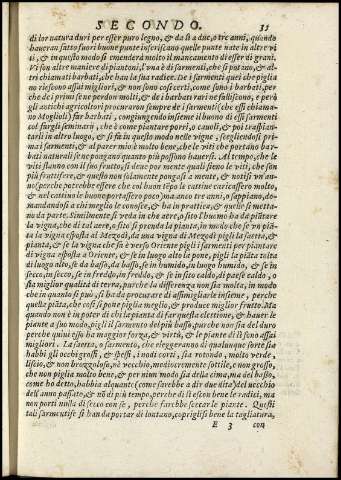 SECONDO. 35
di lor natura duri per esser puro legno, & da lì a due, o tre anni, quando
haueran fatto fuori buone punte inseriscano quelle punte nate in altre vi
ti, & in questo modo si emenderà molto il mancamento di esser di grani.
Vi son altre maniere di piantoni, l'vna è di sarmenti, che si putano, & al-
tri chiamati barbati, che han la sua radice. De i sarmenti quei che piglia
no riescono assai migliori, & non sono così certi, come sono i barbati, per
che de i primi se ne perdon molti, & de i barbati rari ne falliscono, e però
gli antichi agricoltori procurauan sempre de i sarmenti (che essi chiama-
no Moglioli) far barbati, congiungendo insieme il buono di essi sarmenti
col furgli seminari, che è come piantare porri, o cauoli, & poi traspian-
tarli in altro luogo, & si fa in questo modo nelle vigne, scegliendosi pri
ma i sarmenti, & al parer mio è molto bene, che le viti che portano bar-
bati naturali se ne pongano quanto più possono hauersi. Al tempo, che le
viti stanno con il suo frutto, si deue por mente quali sieno le viti, che son
più fruttifere, & questo non solamente pongasi a mente, & notisi vn'an-
no (perche potrebbe essere che col buon tẽpo le cattiue caricassero molto,
& nel cattiuo le buone portassero poco) ma anco tre anni, o sappiano, do-
mandandosi a chi meglio le conosce, & ha in prattica, & quelle si metta-
no da parte. Similmente si veda in che aere, o sito l'huomo ha da piãtare
la vigna, che di tal aere, o sito si prenda la pianta, in modo che se vn piã-
ta la vigna esposta al Mezodì, da una vigna di Mezodì pigli la saetta, &
pianta, & se la vigna sia è verso Oriente pigli i sarmenti per piantare
di vigna esposta a Oriente, & se in luogo alto la pone, pigli la piãta tolta
di luogo alto, se da basso, da basso, se in humido, in luogo humido, & se in
secco, in secco, se in freddo, in freddo, & se in sito caldo, di paese caldo, o
sia miglior qualità di terra, purche la differenza non sia molta, in modo
che in quanto si può, si ha da procurare di assimigliarle insieme, perche
quella piãta, che così si pone piglia meglio, & produce miglior frutto. Ma
quando non è in poter di chi la pianta di far questa elettione, & hauer le
piante a suo modo, pigli il sarmento del più basso, purche non sia del duro
perche quiui esso ha maggior forza, & virtù, & le piante di lì sono assai
migliori. La saetta, o sarmento, che eleggeranno di qualunque sorte sia
habbi gli occhi grossi, & spessi, i nodi corti, sia rotondo, molto verde,
liscio, & non broggoloso, nè vecchio, mediocremente sottile, e non grosso,
che non piglia molto bene, & per niun modo sia della cima, ma del basso,
come ho detto, habbia alquanto (come sarebbe a dir due dita) del vecchio
dell'anno passato, & nõ di più tempo, perche di lì escon bene le radici, ma
non porti nulla di secco con se, perche farebbe seccar le piante. Questi
tali sarmenti se si han da portar di lontano, coprigli si bene la tagliatura,
E 3 con